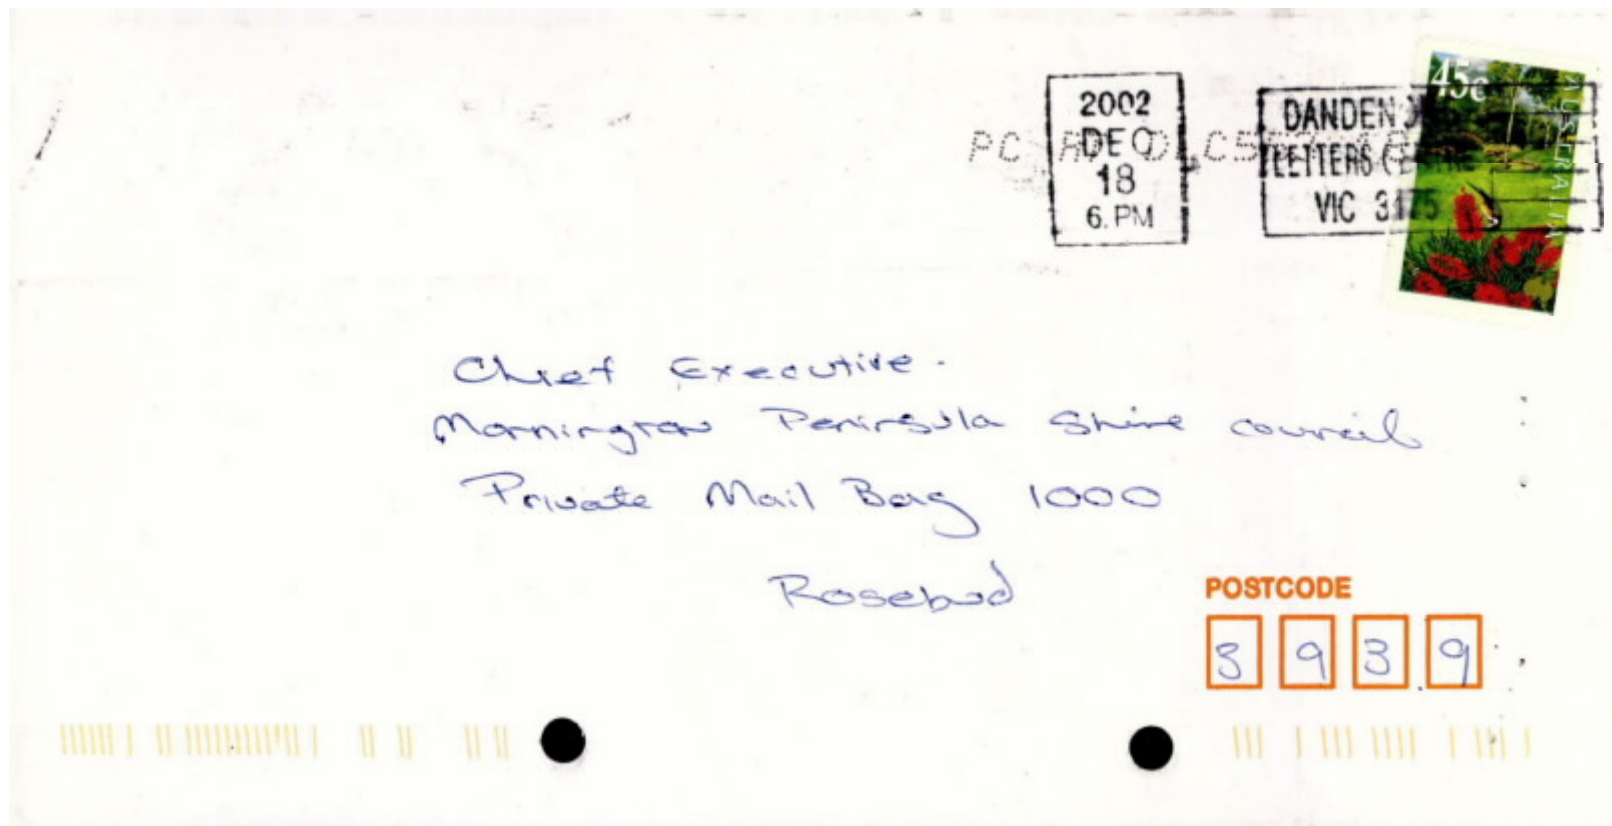 2002
DEC
18
6. PM
DANDEN
LETTERS CE
VIC 3175
45c
AUSTRALIA
Chief Executive.
Mornington Peninsula Shire council
Private Mail Bag 1000
Rosebud
POSTCODE
3939